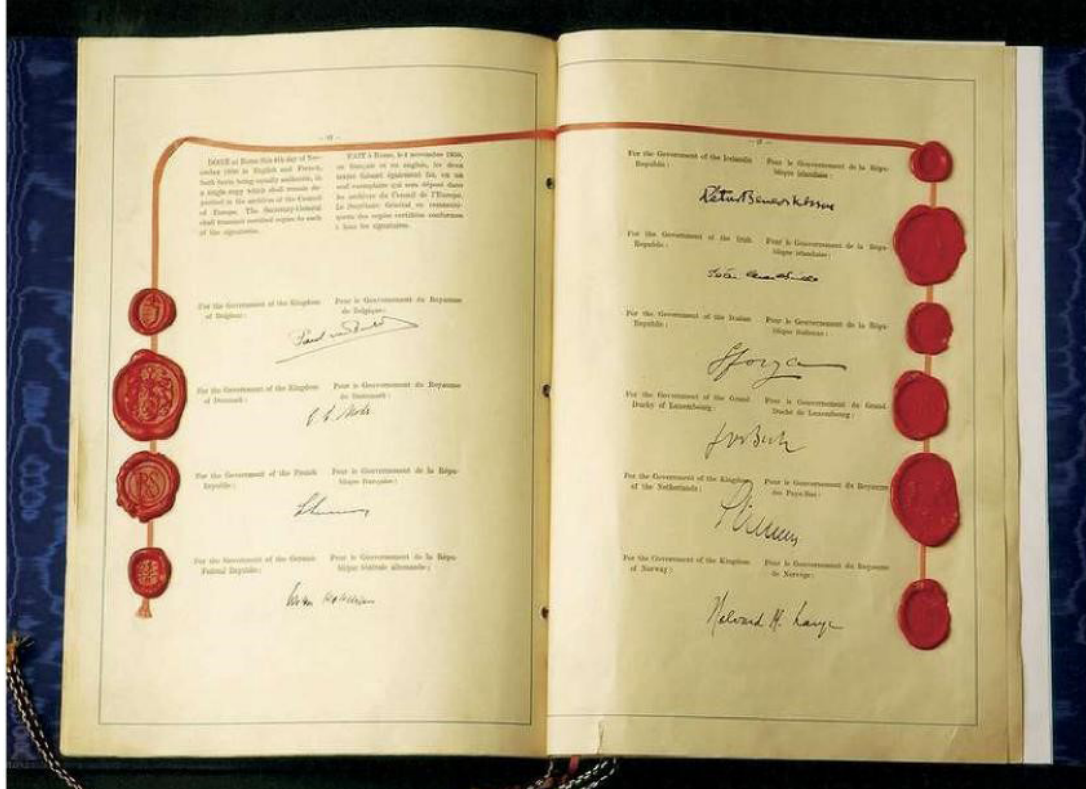 DONE at Rome this 4th day of No-
vember 1950 in English and French,
both texts being equally authentic, in
a single copy which shall remain de-
posited in the archives of the Council
of Europe. The Secretary-General
shall transmit certified copies to each
of the signatories.
FAIT à Rome, le 4 novembre 1950,
en français et en anglais, les deux
textes faisant également foi, en un
seul exemplaire qui sera déposé dans
les archives du Conseil de l'Europe.
Le Secrétaire Général en communi-
quera des copies certifiées conformes
à tous les signataires.
For the Government of the Kingdom
of Belgium:
Pour le Gouvernement du Royaume
de Belgique:
For the Government of the Kingdom
of Denmark:
Pour le Gouvernement du Royaume
de Danemark:
For the Government of the French
Republic:
Pour le Gouvernement de la Répu-
blique française:
For the Government of the German
Federal Republic:
Pour le Gouvernement de la Répu-
blique fédérale allemande:
For the Government of the Icelandic
Republic:
Pour le Gouvernement de la Répu-
blique islandaise:
For the Government of the Irish
Republic:
Pour le Gouvernement de la Répu-
blique irlandaise:
For the Government of the Italian
Republic:
Pour le Gouvernement de la Répu-
blique italienne:
For the Government of the Grand
Duchy of Luxembourg:
Pour le Gouvernement du Grand
Duché de Luxembourg:
For the Government of the Kingdom
of the Netherlands:
Pour le Gouvernement du Royaume
des Pays-Bas:
For the Government of the Kingdom
of Norway:
Pour le Gouvernement du Royaume
de Norvège:
Halvard M. Lange